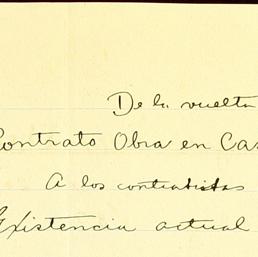 De la vuelta
Contrato Obra en Cas
A los contratistas
Existencia actual